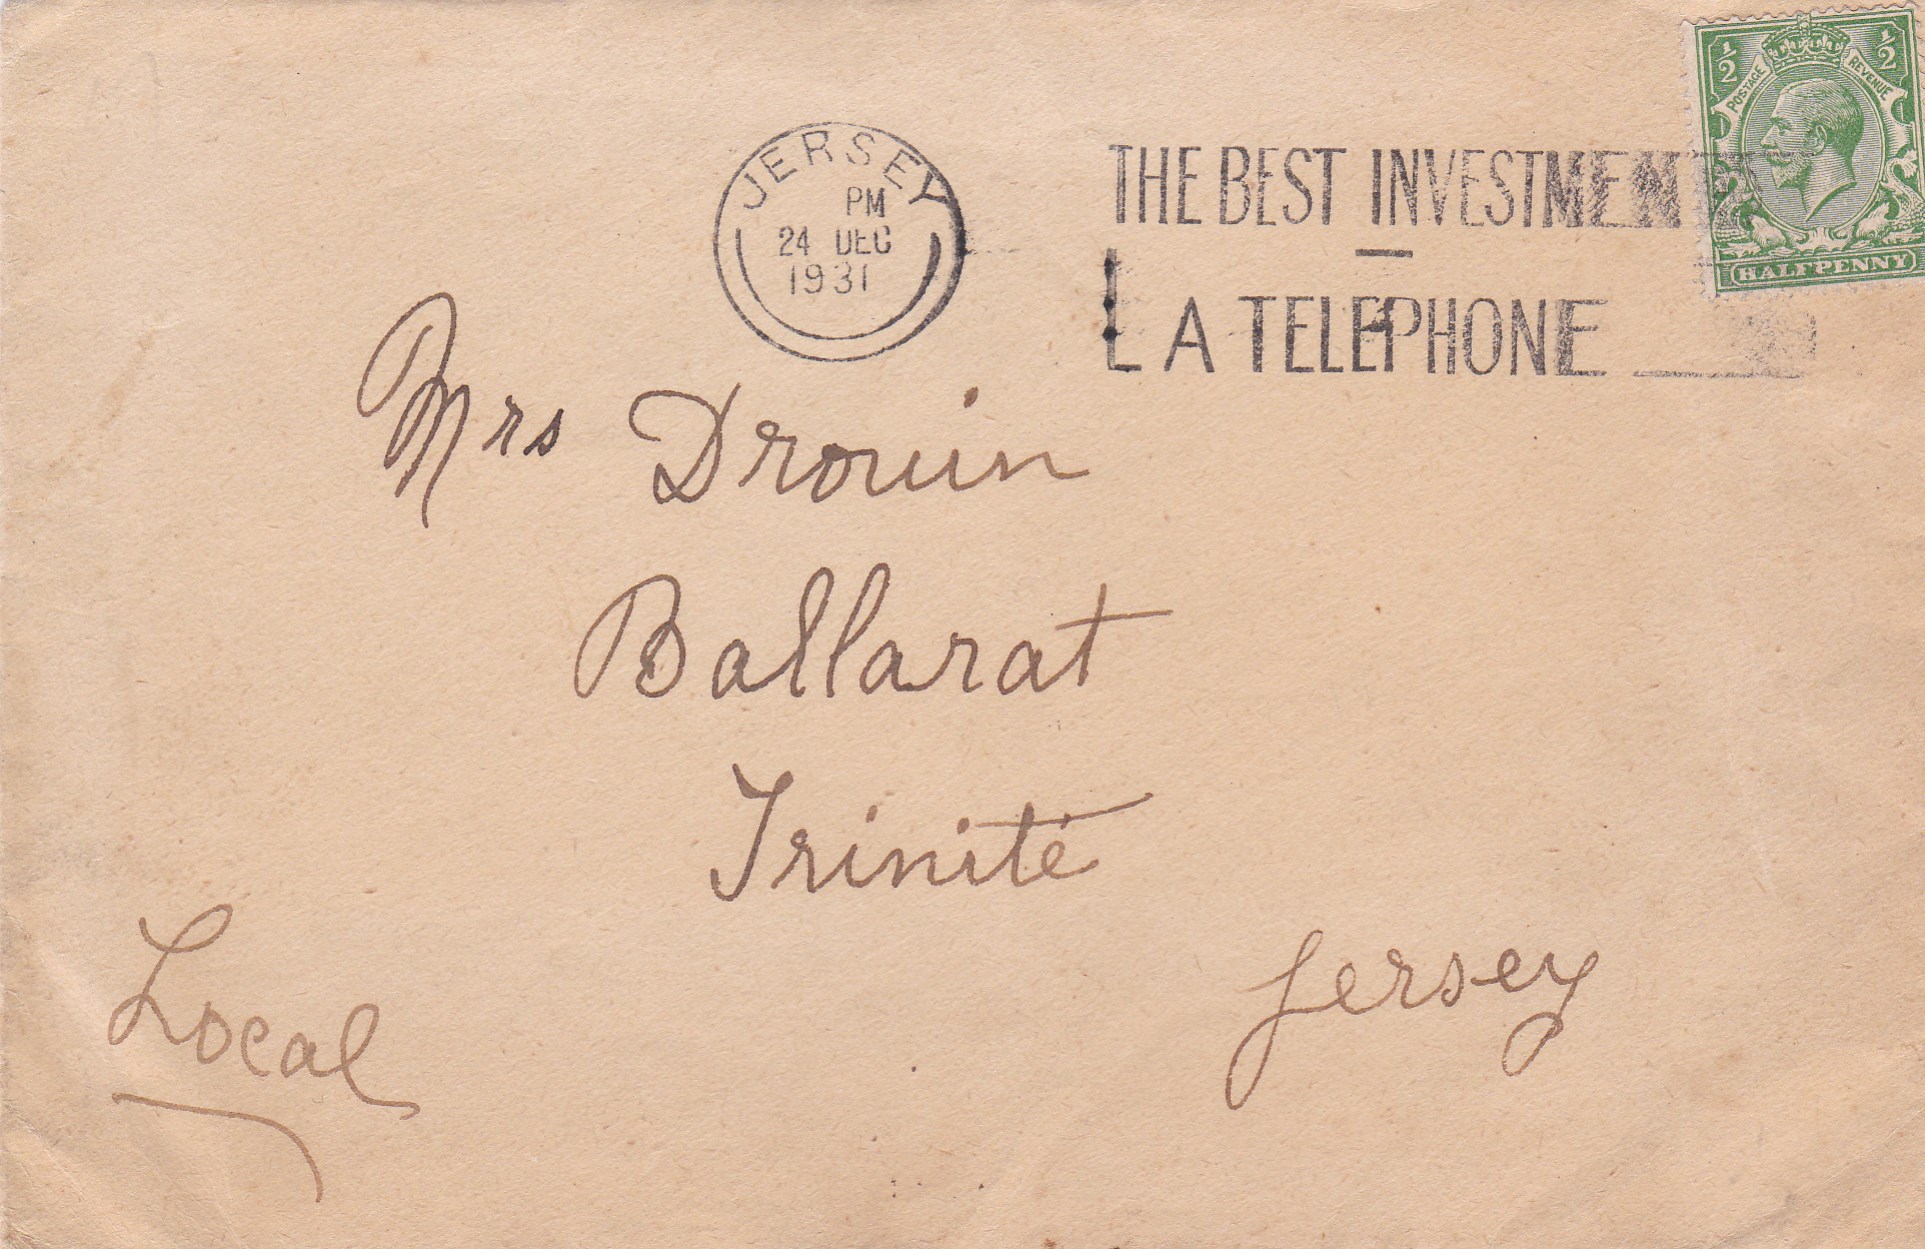 JERSEY
PM
24 DEC
1931
THE BEST INVESTMENT
A TELEPHONE
½ ½
POSTAGE REVENUE
HALFPENNY
Mrs Drouin
Ballarat
Trinité
Jersey
Local